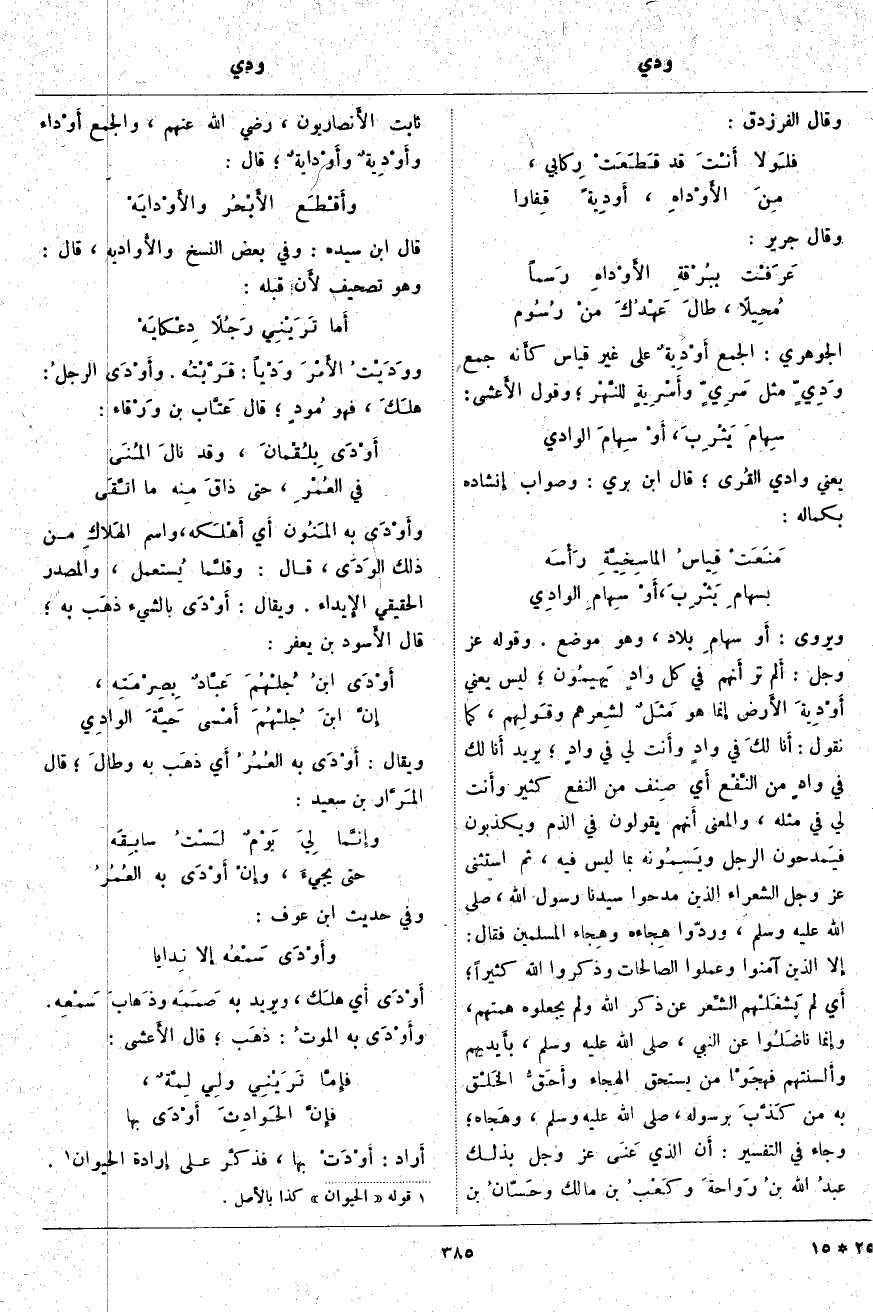 ودي
ودي
وقال الفرزدق :
فلَولا أَنْتَ قد قَطَعَتْ رِكابي ،
مِنَ الأَوْداهِ ، أَودِيةً قِفارا
وقال جرير :
عَرَفْت بِبُرْقةِ الأَوْداهِ رَسْماً
مُحِيلًا ، طالَ عَهْدُكَ مِنْ رُسُوم
الجوهري : الجمع أَوْدِيةٌ على غير قياس كأنه جمع
وَدِيٍّ مثل سَرِيٍّ وأَسْرِيةٍ للنَّهْر ؛ وقول الأَعشى :
سِهامَ يَثْرِبَ ، أَوْ سِهامَ الوادي
يعني وادي القُرى ؛ قال ابن بري : وصواب إنشاده
بكماله :
مَنَعَتْ قِياسُ الماسِخِيَّةِ رَأْسَه
بسهامِ يَثْرِبَ ، أَوْ سِهامِ الوادِي
ويروى : أو سهامِ بلاد ، وهو موضع . وقوله عز
وجل : أَلم تر أَنهم في كل وادٍ يَهِيمُون ؛ ليس يعني
أَوْدِيةَ الأَرض إِنما هو مَثَلٌ لشِعرهم وقَولِهم ، كما
نقول : أَنا لكَ في وادٍ وأَنت لي في وادٍ ؛ يريد أَنا لك
في وادٍ من النَّفْع أَي صِنف من النفع كثير وأَنت
لي في مثله ، والمعنى أَنهم يقولون في الذم ويكذبون
فيَمدحون الرجل ويَسِمُونه بما ليس فيه ، ثم استثنى
عز وجل الشعراء الذين مدحوا سيدنا رسول الله ، صلى
الله عليه وسلم ، وردّوا هِجاءه وهِجاء المسلمين فقال :
إلا الذين آمنوا وعملوا الصالحات وذكروا الله كثيراً ؛
أَي لم يَشْغَلْهم الشِّعر عن ذكر الله ولم يجعلوه همتهم ،
وإنما ناضَلُوا عن النبي ، صلى الله عليه وسلم ، بأَيديهم
وأَلسنتهم فهجَوْا من يستحق الهِجاء وأَحَقُّ الخَلْق
به من كَذَّبَ برسوله ، صلى الله عليه وسلم ، وهَجاه ؛
وجاء في التفسير : أَن الذي عَنَى عز وجل بذلك
عبدُ الله بنُ رَواحةَ وكَعْبُ بن مالك وحَسَّانُ بن
ثابت الأَنصاريون ، رضي الله عنهم ، والجمع أَوْداء
وأَوْدِيةٌ وأَوْدايةٌ ؛ قال :
وأَقْطَع الأَبْحُر والأَوْدايَهْ
قال ابن سيده : وفي بعض النسخ والأَواديه ، قال :
وهو تصحيف لأَن قبله :
أَما تَرَيْنِي رَجُلًا دِعْكايَهْ
ووَدَيْتُ الأَمْرَ وَدْياً : قَرَّبْتُه . وأَوْدَى الرجلُ :
هَلَكَ ، فهو مُودٍ ؛ قال عَتَّاب بن وَرْقاء :
أَوْدَى بِلُقْمانَ ، وقد نالَ المُنَى
في العُمْرِ ، حتى ذاقَ مِنه ما اتَّقَى
وأَوْدَى به المَنُون أَي أَهْلَكه ، واسم الهَلاكِ من
ذلك الوَدَى ، قال : وقلَّما يُستعمل ، والمصدر
الحقيقي الإِيداء . ويقال : أَوْدَى بالشيء ذهَب به ؛
قال الأَسود بن يعفر :
أَوْدَى ابنُ جُلْهُمَ عَبَّادٌ بِصِرْمَتِه ،
إِنَّ ابنَ جُلْهُمَ أَمْسى حَيَّةَ الوادِي
ويقال : أَوْدَى به العُمُرُ أَي ذهَب به وطالَ ؛ قال
المَرَّار بن سعيد :
وإِنَّما لِيَ يَوْمٌ لَسْتُ سابِقَه
حتى يجيءَ ، وإِنْ أَوْدَى به العُمُرُ
وفي حديث ابن عوف :
وأَوْدَى سَمْعُه إلا نِدايا
أَوْدَى أَي هلَك ، ويريد به صَمَمَه وذَهابَ سَمْعِه .
وأَوْدَى به الموتُ : ذهَب ؛ قال الأَعشى :
فإِمَّا تَرَيْنِي ولِي لِمَّةٌ ،
فإِنَّ الحَوادِثَ أَوْدَى بها
أَراد : أَوْدَتْ بها ، فذكَّر على إرادة الحيوان١ .
١ قوله « الحيوان » كذا بالأصل .
٣٨٥
٢٥ * ١٥